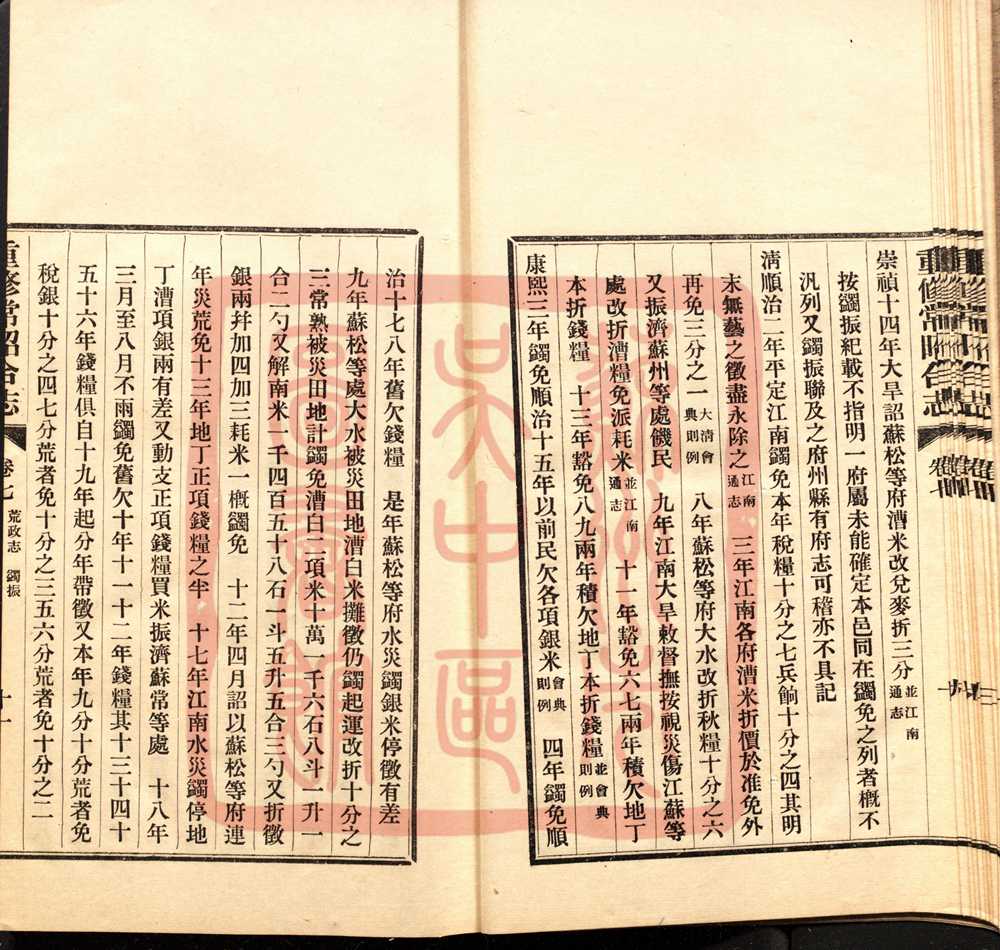 崇禎十四年大旱詔蘇松等府漕米改兌麥折三分並江南通志
按蠲振紀載不指明一府屬未能確定本邑同在蠲免之列者概不
汎列又蠲振聯及之府州縣有府志可稽亦不具記
清順治二年平定江南蠲免本年稅糧十分之七兵餉十分之四其明
末無藝之徵盡永除之江南通志 三年江南各府漕米折價於准免外
再免三分之一大清會典則例 八年蘇松等府大水改折秋糧十分之六
又振濟蘇州等處饑民 九年江南大旱敕督撫按視災傷江蘇等
處改折漕糧免派耗米並江南通志 十一年豁免六七兩年積欠地丁
本折錢糧 十三年豁免八九兩年積欠地丁本折錢糧並會典則例
康熙三年蠲免順治十五年以前民欠各項銀米會典則例 四年蠲免順
治十七八年舊欠錢糧 是年蘇松等府水災蠲銀米停徵有差
九年蘇松等處大水被災田地漕白米攤徵仍蠲起運改折十分之
三常熟被災田地計蠲免漕白二項米十萬一千六石八斗一升一
合二勺又解南米一千四百五十八石一斗五升五合三勺又折徵
銀兩幷加四加三耗米一概蠲免 十二年四月詔以蘇松等府連
年災荒免十三年地丁正項錢糧之半 十七年江南水災蠲停地
丁漕項銀兩有差又動支正項錢糧買米振濟蘇常等處 十八年
三月至八月不雨蠲免舊欠十年十一十二年錢糧其十三十四十
五十六年錢糧俱自十九年起分年帶徵又本年九分十分荒者免
稅銀十分之四七分荒者免十分之三五六分荒者免十分之二
重修常昭合志 卷七 荒政志 蠲振 十一